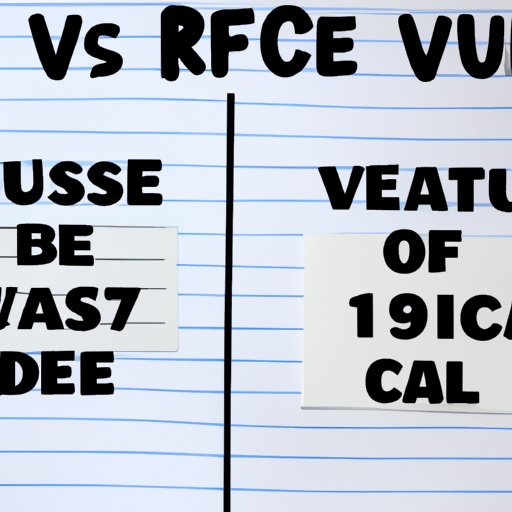 Vs RFCE VU
USSE
BE
VAS7
DEE
VEATU
OF
19ICA
CAL